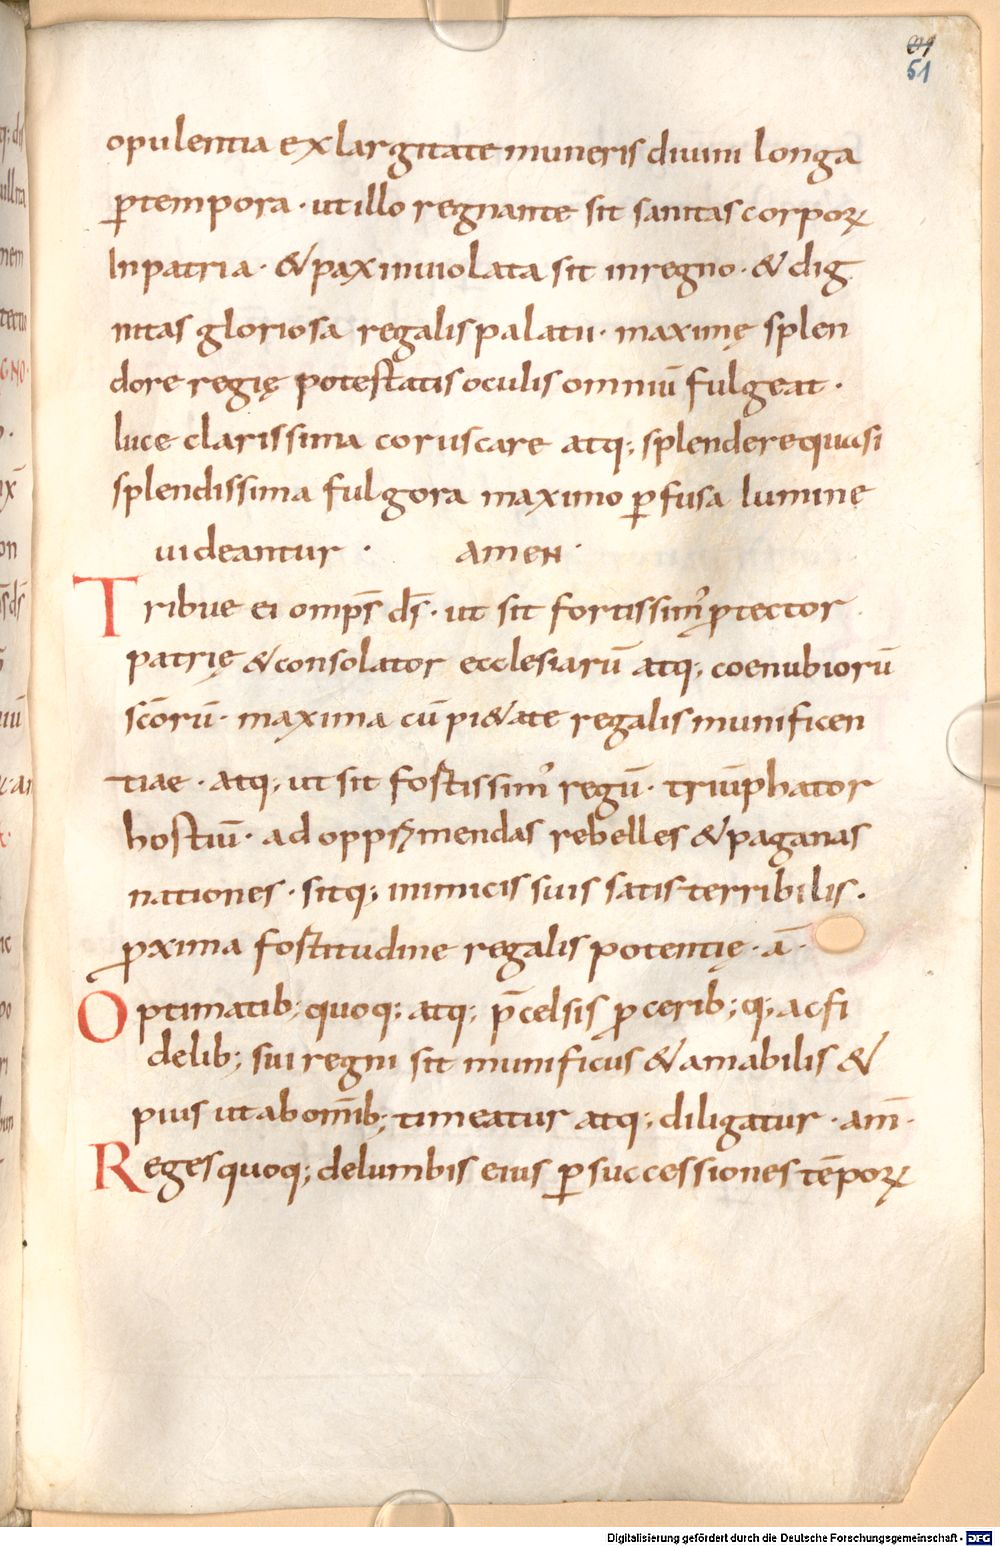 51
opulentia exlargitate muneris divini longa
p̄tempora · utillo regnante sit sanitas corporꝝ
Inpatria · & pax inviolata sit inregno · & dig
nitas gloriosa regalis palatii · maximę splen
dore regię potestatis oculis omniū fulgeat ·
luce clarissima coruscare atq; splendere quasi
splendissima fulgora maximo p̄fusa luminę
uideantur · AMEN ·
Tribue ei omp̄s d̄s · ut sit fortissim᾿ ꝓtector
patrię & consolator ecclesiarū atq; coenubiorū
scōrū · maxima cū pi&ate regalis munificen
tiae · atq; ut sit fostissim᾿ regū · triūphator
hostiū · ad opprimendas rebelles & paganas
nationes · sitq; inimicis suis satis terribilis ·
ꝓxima fostitudine regalis potentię · ā ·
Optimatib; quoq; atq; p̄celsis ꝓcerib; q; ac fi
delib; sui regni sit munificus & amabilis &
pius ut abomīb; timeatur atq; diligatur · am̄ ·
Reges quoq; delumbis eius p̄ successiones tēporꝝ
Digitalisierung gefördert durch die Deutsche Forschungsgemeinschaft - DFG